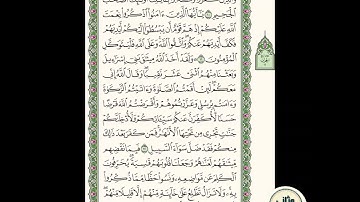 ٱلْجَحِيمِ ١٠ يَٰٓأَيُّهَا ٱلَّذِينَ ءَامَنُوا۟ ٱذْكُرُوا۟ نِعْمَتَ
ٱللَّهِ عَلَيْكُمْ إِذْ هَمَّ قَوْمٌ أَن يَبْسُطُوٓا۟ إِلَيْكُمْ أَيْدِيَهُمْ
فَكَفَّ أَيْدِيَهُمْ عَنكُمْ وَٱتَّقُوا۟ ٱللَّهَ وَعَلَى ٱللَّهِ فَلْيَتَوَكَّلِ
ٱلْمُؤْمِنُونَ ١١ وَلَقَدْ أَخَذَ ٱللَّهُ مِيثَٰقَ بَنِىٓ إِسْرَٰٓءِيلَ
وَبَعَثْنَا مِنْهُمُ ٱثْنَىْ عَشَرَ نَقِيبًا وَقَالَ ٱللَّهُ إِنِّى
مَعَكُمْ لَئِنْ أَقَمْتُمُ ٱلصَّلَوٰةَ وَءَاتَيْتُمُ ٱلزَّكَوٰةَ
وَءَامَنتُم بِرُسُلِى وَعَزَّرْتُمُوهُمْ وَأَقْرَضْتُمُ ٱللَّهَ قَرْضًا
حَسَنًا لَّأُكَفِّرَنَّ عَنكُمْ سَيِّـَٔاتِكُمْ وَلَأُدْخِلَنَّكُمْ
جَنَّٰتٍ تَجْرِى مِن تَحْتِهَا ٱلْأَنْهَٰرُ فَمَن كَفَرَ بَعْدَ ذَٰلِكَ
مِنكُمْ فَقَدْ ضَلَّ سَوَآءَ ٱلسَّبِيلِ ١٢ فَبِمَا نَقْضِهِم
مِّيثَٰقَهُمْ لَعَنَّٰهُمْ وَجَعَلْنَا قُلُوبَهُمْ قَٰسِيَةً يُحَرِّفُونَ
ٱلْكَلِمَ عَن مَّوَاضِعِهِۦ وَنَسُوا۟ حَظًّا مِّمَّا ذُكِّرُوا۟
بِهِۦ وَلَا تَزَالُ تَطَّلِعُ عَلَىٰ خَآئِنَةٍ مِّنْهُمْ إِلَّا قَلِيلًا مِّنْهُمْ